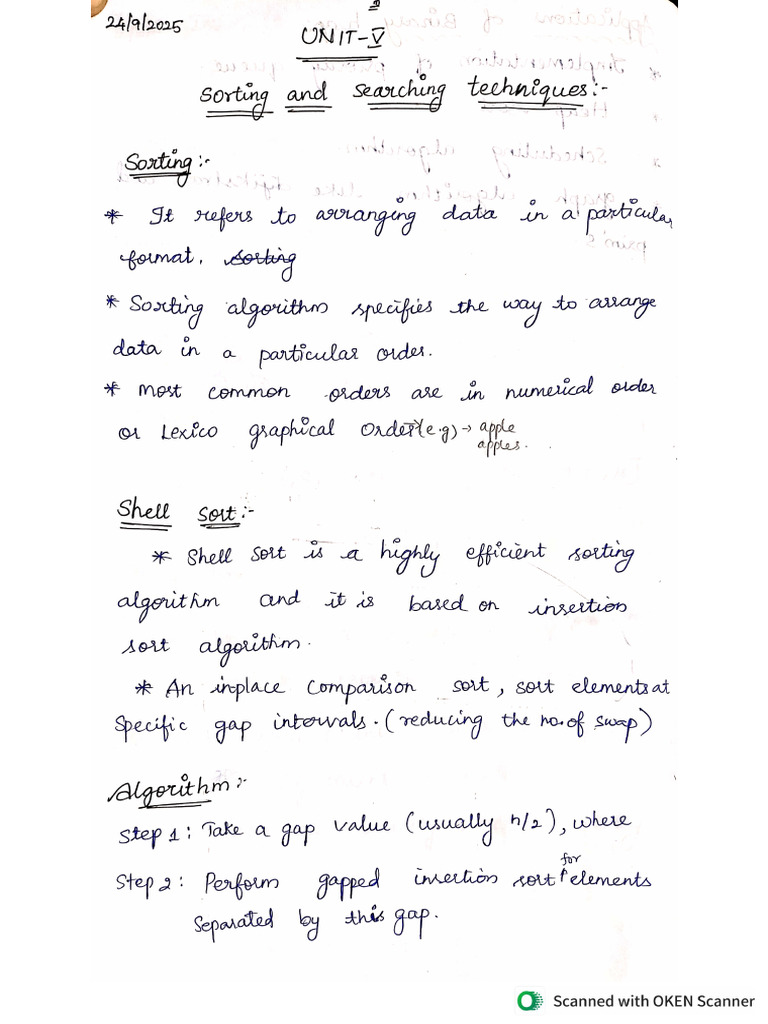 24/9/2025
UNIT-V
Sorting and Searching techniques:-
Sorting:-
* It refers to arranging data in a particular
format. sorting
* Sorting algorithm specifies the way to arrange
data in a particular order.
* Most common orders are in numerical order
or Lexico graphical Order(e.g)→ apple
apples.
Shell Sort:-
* Shell sort is a highly efficient sorting
algorithm and it is based on insertion
sort algorithm.
* An inplace comparison sort, sort elements at
specific gap intervals. (reducing the no. of swap)
Algorithm:-
Step 1: Take a gap value (usually n/2), where
for
Step 2: Perform gapped insertion sort elements
Separated by this gap.
Scanned with OKEN Scanner